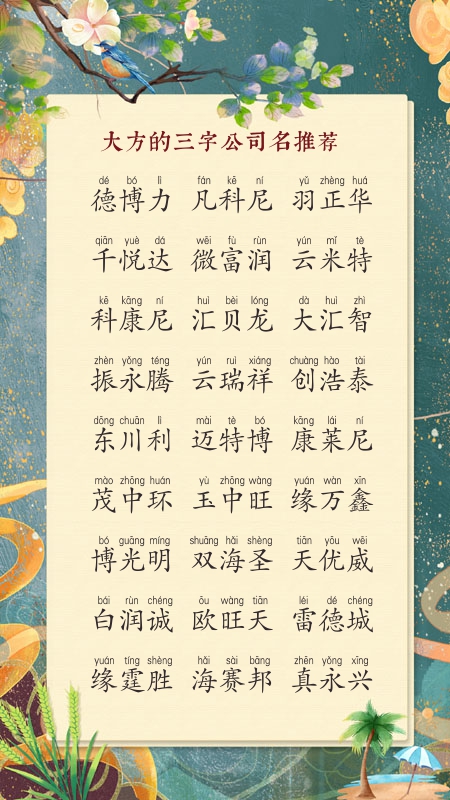 大方的三字公司名推荐
dé bó lì fán kē ní yǔ zhèng huá
德博力 凡科尼 羽正华
qiān yuè dá wēi fù rùn yún mǐ tè
千悦达 微富润 云米特
kē kāng ní huì bèi lóng dà huì zhì
科康尼 汇贝龙 大汇智
zhèn yǒng téng yún ruì xiáng chuàng hào tài
振永腾 云瑞祥 创浩泰
dōng chuān lì mài tè bó kāng lái ní
东川利 迈特博 康莱尼
mào zhōng huán yù zhōng wàng yuán wàn xīn
茂中环 玉中旺 缘万鑫
bó guāng míng shuāng hǎi shèng tiān yōu wēi
博光明 双海圣 天优威
bái rùn chéng ōu wàng tiān léi dé chéng
白润诚 欧旺天 雷德城
yuán tíng shèng hǎi sài bāng zhēn yǒng xīng
缘霆胜 海赛邦 真永兴